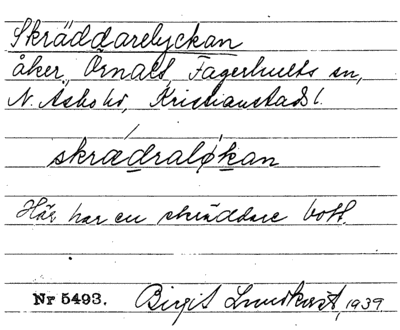 Skräddarelyckan
åker, Örnalt, Fagerhults sn,
N. Åsbo hd, Kristianstads l.
skrædralǿkan
Här har en skräddare bott.
Nr 5493. Birgit Lundkvist, 1939.